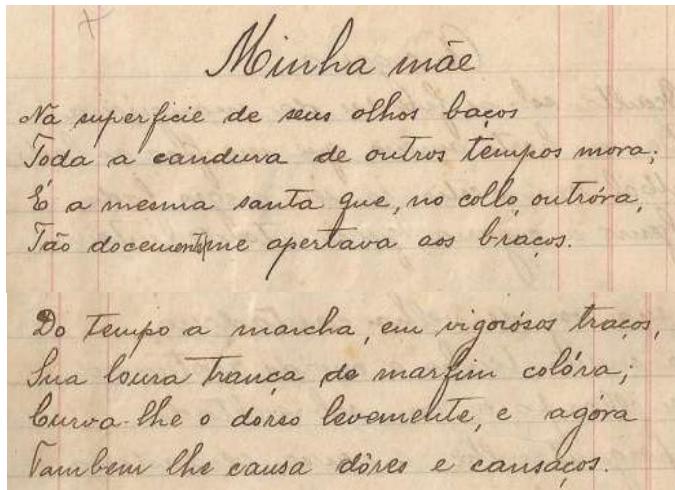 Minha mãe
Na superficie de seus olhos baços
Toda a candura de outros tempos mora;
É a mesma santa que, no collo, outróra,
Tão docemente me apertava aos braços.
Do tempo a marcha, em vigorósos traços,
Sua loura trança de marfim colóra;
Curva-lhe o dorso levemente, e agóra
Tambem lhe causa dôres e cansaços.